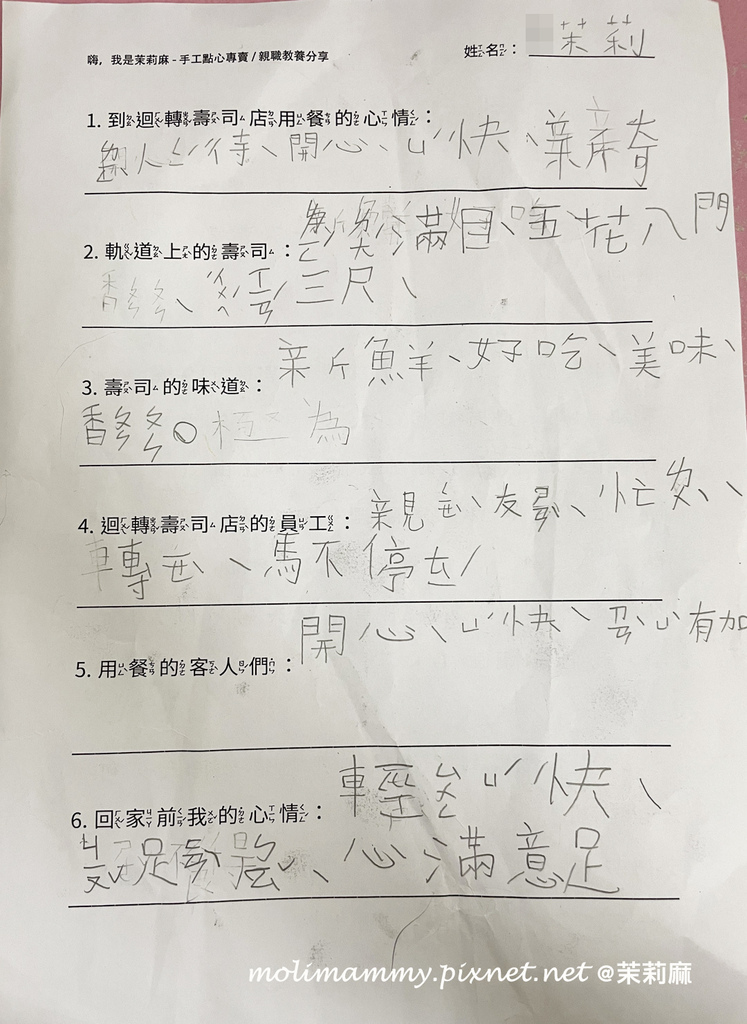 嗨，我是茉莉麻 - 手工點心專賣 / 親職教養分享
姓名： 茉莉
1. 到迴轉壽司店用餐的心情：
人 待、開心、ㄩˊ快、新奇
2. 軌道上的壽司： 滿目、五花八門
香ㄆㄣ ㄆㄣ、 三尺、
3. 壽司的味道： 新鮮、好吃、美味、
香ㄆㄣ ㄆㄣ。極 為
4. 迴轉壽司店的員工： 親ㄑㄧㄝˋ友ㄕㄢˋ、忙 、
專 、馬不停ㄊㄧˊ
5. 用餐的客人們： 開心、ㄩˊ快、 有加
6. 回家前我的心情： 輕ㄙㄨㄥ ㄩˊ快、
足 、心滿意足
molimammy.pixnet.net @茉莉麻